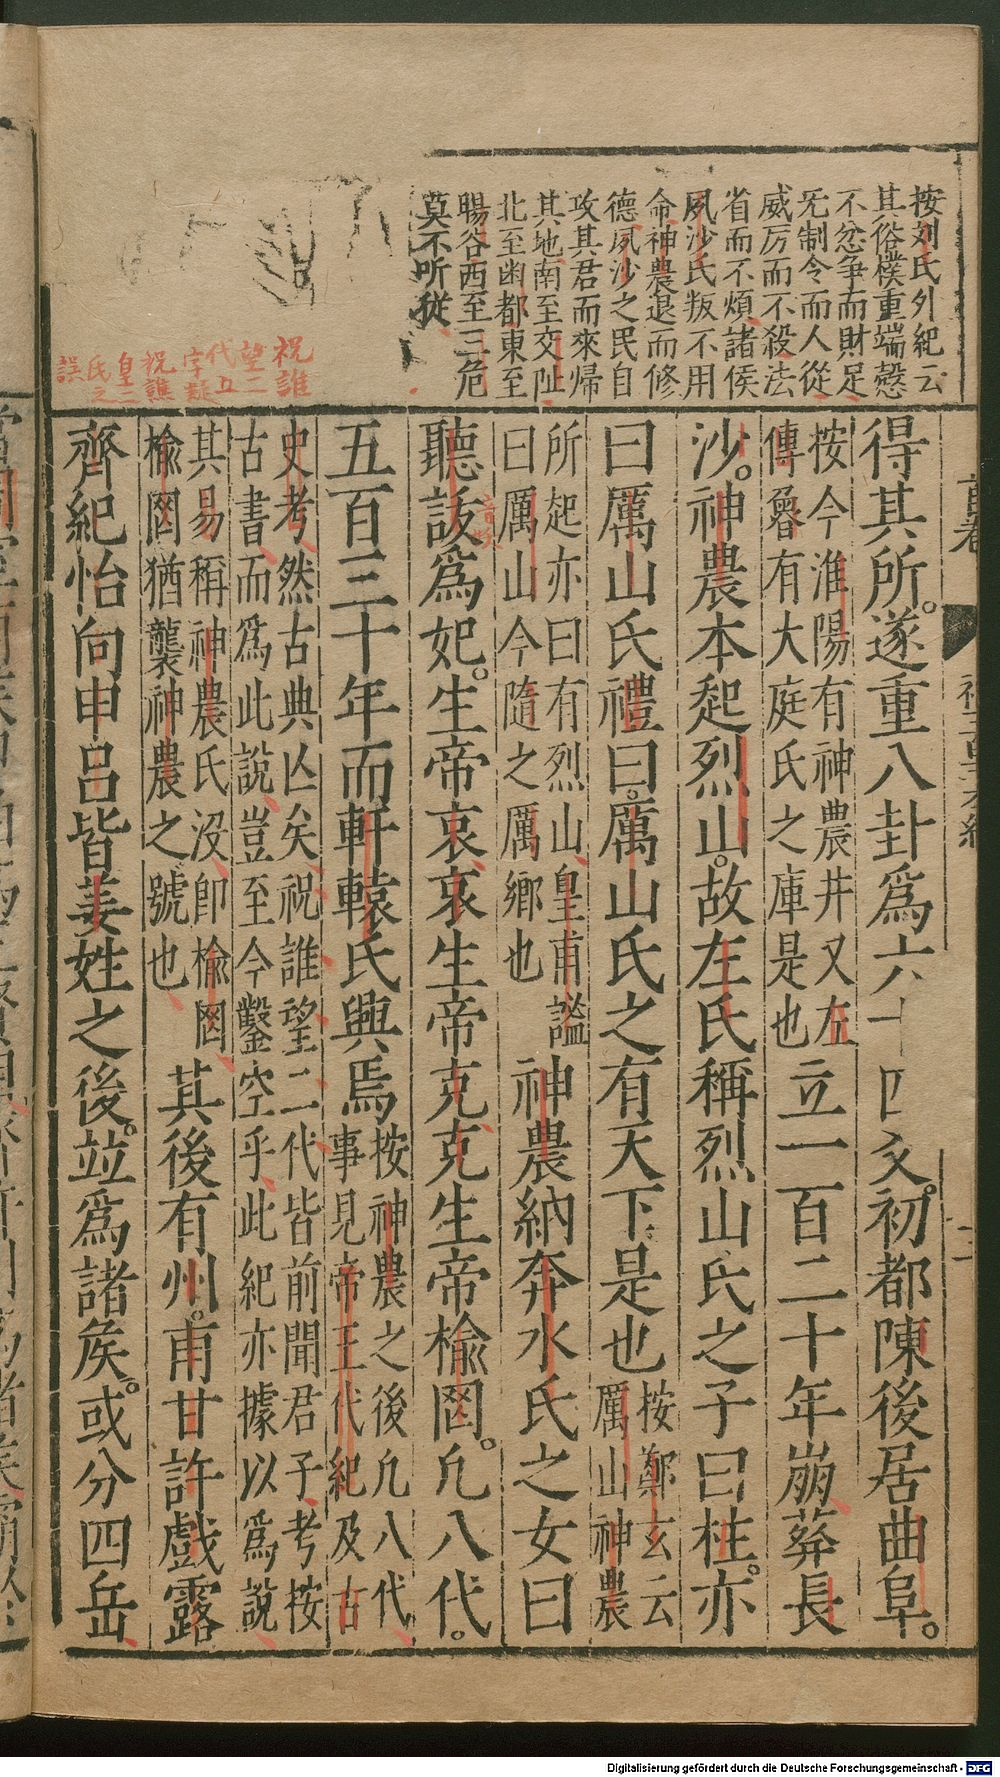 按刘氏外紀云
其俗樸重端慤
不忿争而財足
旡制令而人從
威厉而不殺法
省而不煩諸侯
夙沙氏叛不用
命神農退而修
德夙沙之民自
攻其君而來歸
其地南至交阯
北至幽都東至
暘谷西至三危
莫不听從
祝誰
望二
代五
字疑
祝譙
皇三
氏之
誤
首卷
得其所。遂重八卦爲六十四爻。初都陳後居曲阜。
按今淮陽有神農井又左
傳魯有大庭氏之庫是也
立一百二十年崩葬長
沙。神農本起烈山。故左氏稱烈山氏之子曰柱。亦
曰厲山氏禮曰。厲山氏之有天下是也
按鄭玄云
厲山神農
所起亦曰有烈山皇甫謐
曰厲山今隨之厲鄉也
神農納奔水氏之女曰
聽訞爲妃。生帝哀哀生帝克克生帝榆罔。凡八代。
音妖
五百三十年而軒轅氏興焉
按神農之後凡八代
事見帝王代紀及古
史考然古典亾矣祝誰望二代皆前聞君子考按
古書而爲此說豈至今鑿空乎此紀亦據以爲說
其易稱神農氏沒卽榆罔
榆罔猶襲神農之號也
其後有州。甫甘許戲露
齊紀怡向申吕皆姜姓之後。竝爲諸矦。或分四岳
Digitalisierung gefördert durch die Deutsche Forschungsgemeinschaft - DFG